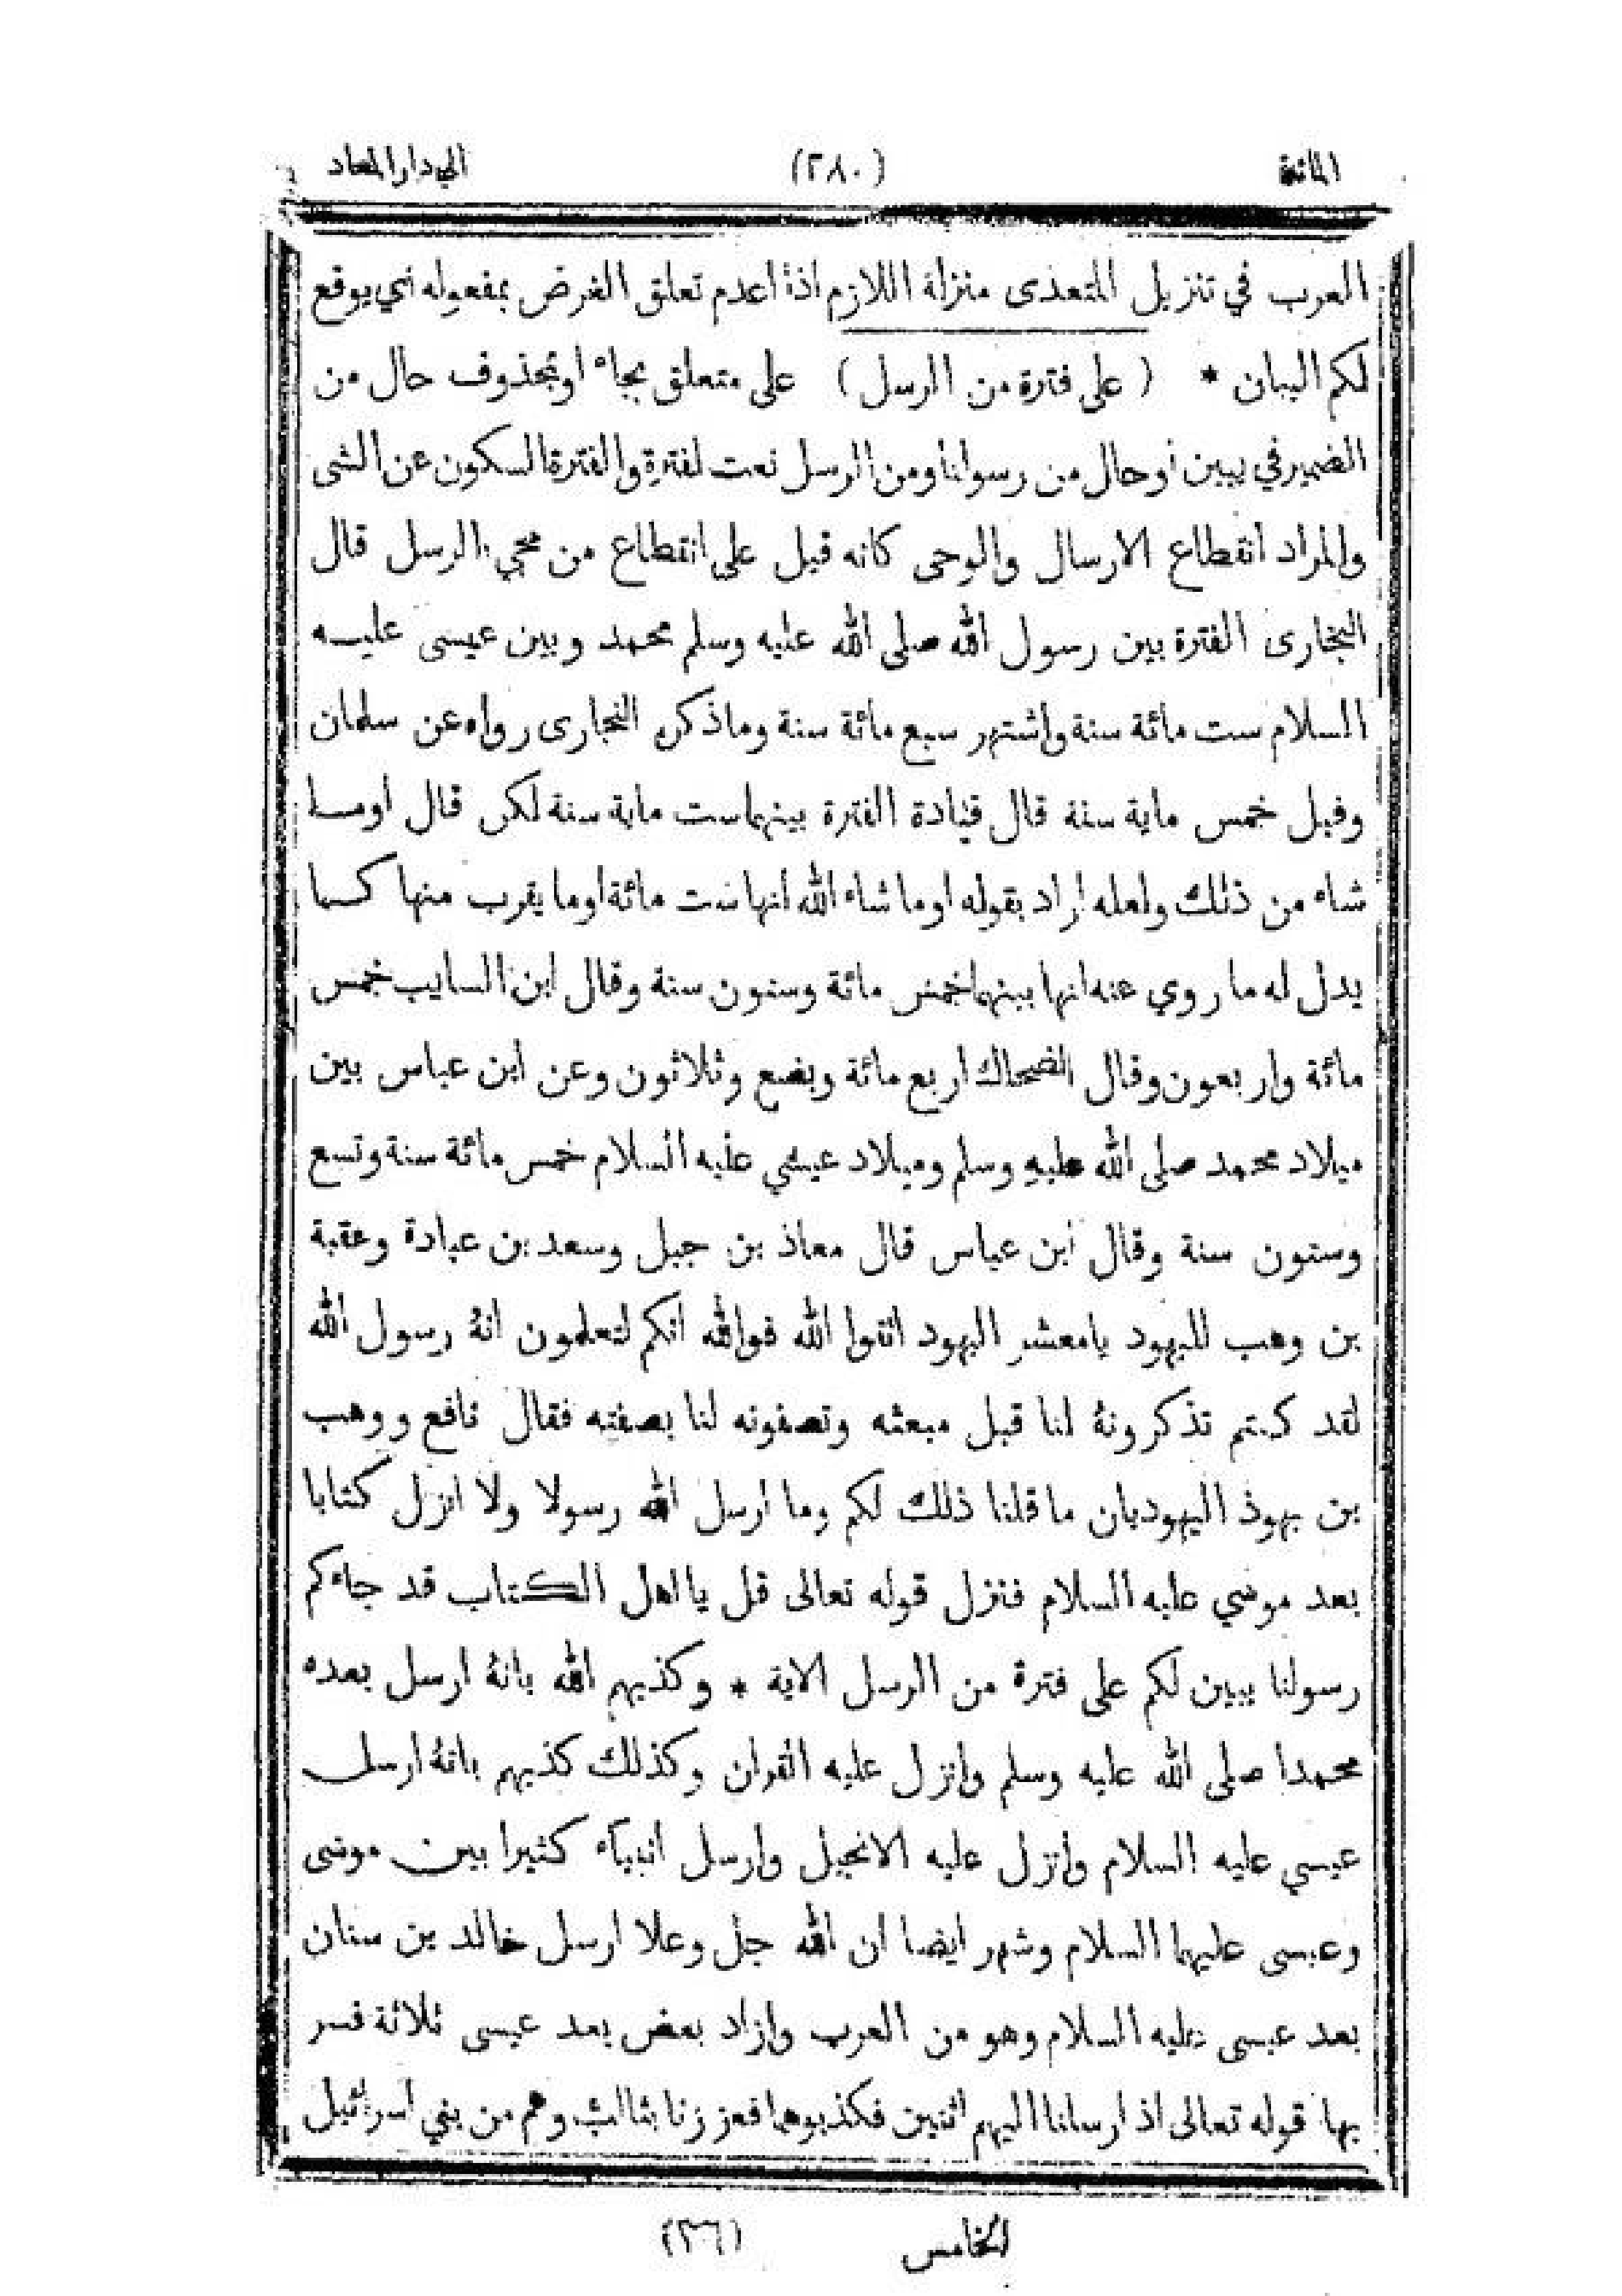 المائدة (٢٨٠) الى دار المعاد
العرب في تنزيل المتعدى منزلة اللازم اذا عدم تعلق الغرض بمفعوله اي يوقع
لكم البيان * (على فترة من الرسل) على متعلق بجاء او بمحذوف حال من
الضمير في يبين او حال من رسولنا ومن الرسل نعت لفترة والفترة السكون عن الشى
والمراد انقطاع الارسال والوحى كانه قيل على انقطاع من مجيء الرسل قال
البخارى الفترة بين رسول الله صلى الله عليه وسلم محمد وبين عيسى عليه
السلام ست مائة سنة واشتهر سبع مائة سنة وما ذكره البخارى رواه عن سلمان
وقيل خمس ماية سنة قال قتادة الفترة بينهما ست ماية سنة لكن قال او ما
شاء من ذلك ولعله اراد بقوله او ما شاء الله انها ست مائة او ما يقرب منها كما
يدل له ما روي عنه انها بينهما خمس مائة وستون سنة وقال ابن السايب خمس
مائة واربعون وقال الضحاك اربع مائة وبضع وثلاثون وعن ابن عباس بين
ميلاد محمد صلى الله عليه وسلم وميلاد عيسي عليه السلام خمس مائة سنة وتسع
وستون سنة وقال ابن عباس قال معاذ بن جبل وسعد بن عبادة وعقبة
بن وهب لليهود يا معشر اليهود اتقوا الله فوالله انكم لتعلمون انه رسول الله
لقد كنتم تذكرونه لنا قبل مبعثه وتصفونه لنا بصفته فقال نافع ووهب
بن يهوذ اليهوديان ما قلنا ذلك لكم وما ارسل الله رسولا ولا انزل كتابا
بعد موسي عليه السلام فنزل قوله تعالى قل يا اهل الكتاب قد جاءكم
رسولنا يبين لكم على فترة من الرسل الاية * وكذبهم الله بانه ارسل بعده
محمدا صلى الله عليه وسلم وانزل عليه القران وكذلك كذبهم بانه ارسل
عيسي عليه السلام وانزل عليه الانجيل وارسل انبيآء كثيرا بين موسى
وعيسى عليهما السلام وشهر ايضا ان الله جل وعلا ارسل خالد بن سنان
بعد عيسى عليه السلام وهو من العرب وازاد بعض بعد عيسى ثلاثة فسر
بها قوله تعالى اذ ارسلنا اليهم اثنين فكذبوهما فعززنا بثالث وهم من بني اسرائيل
الخامس (٣٦)